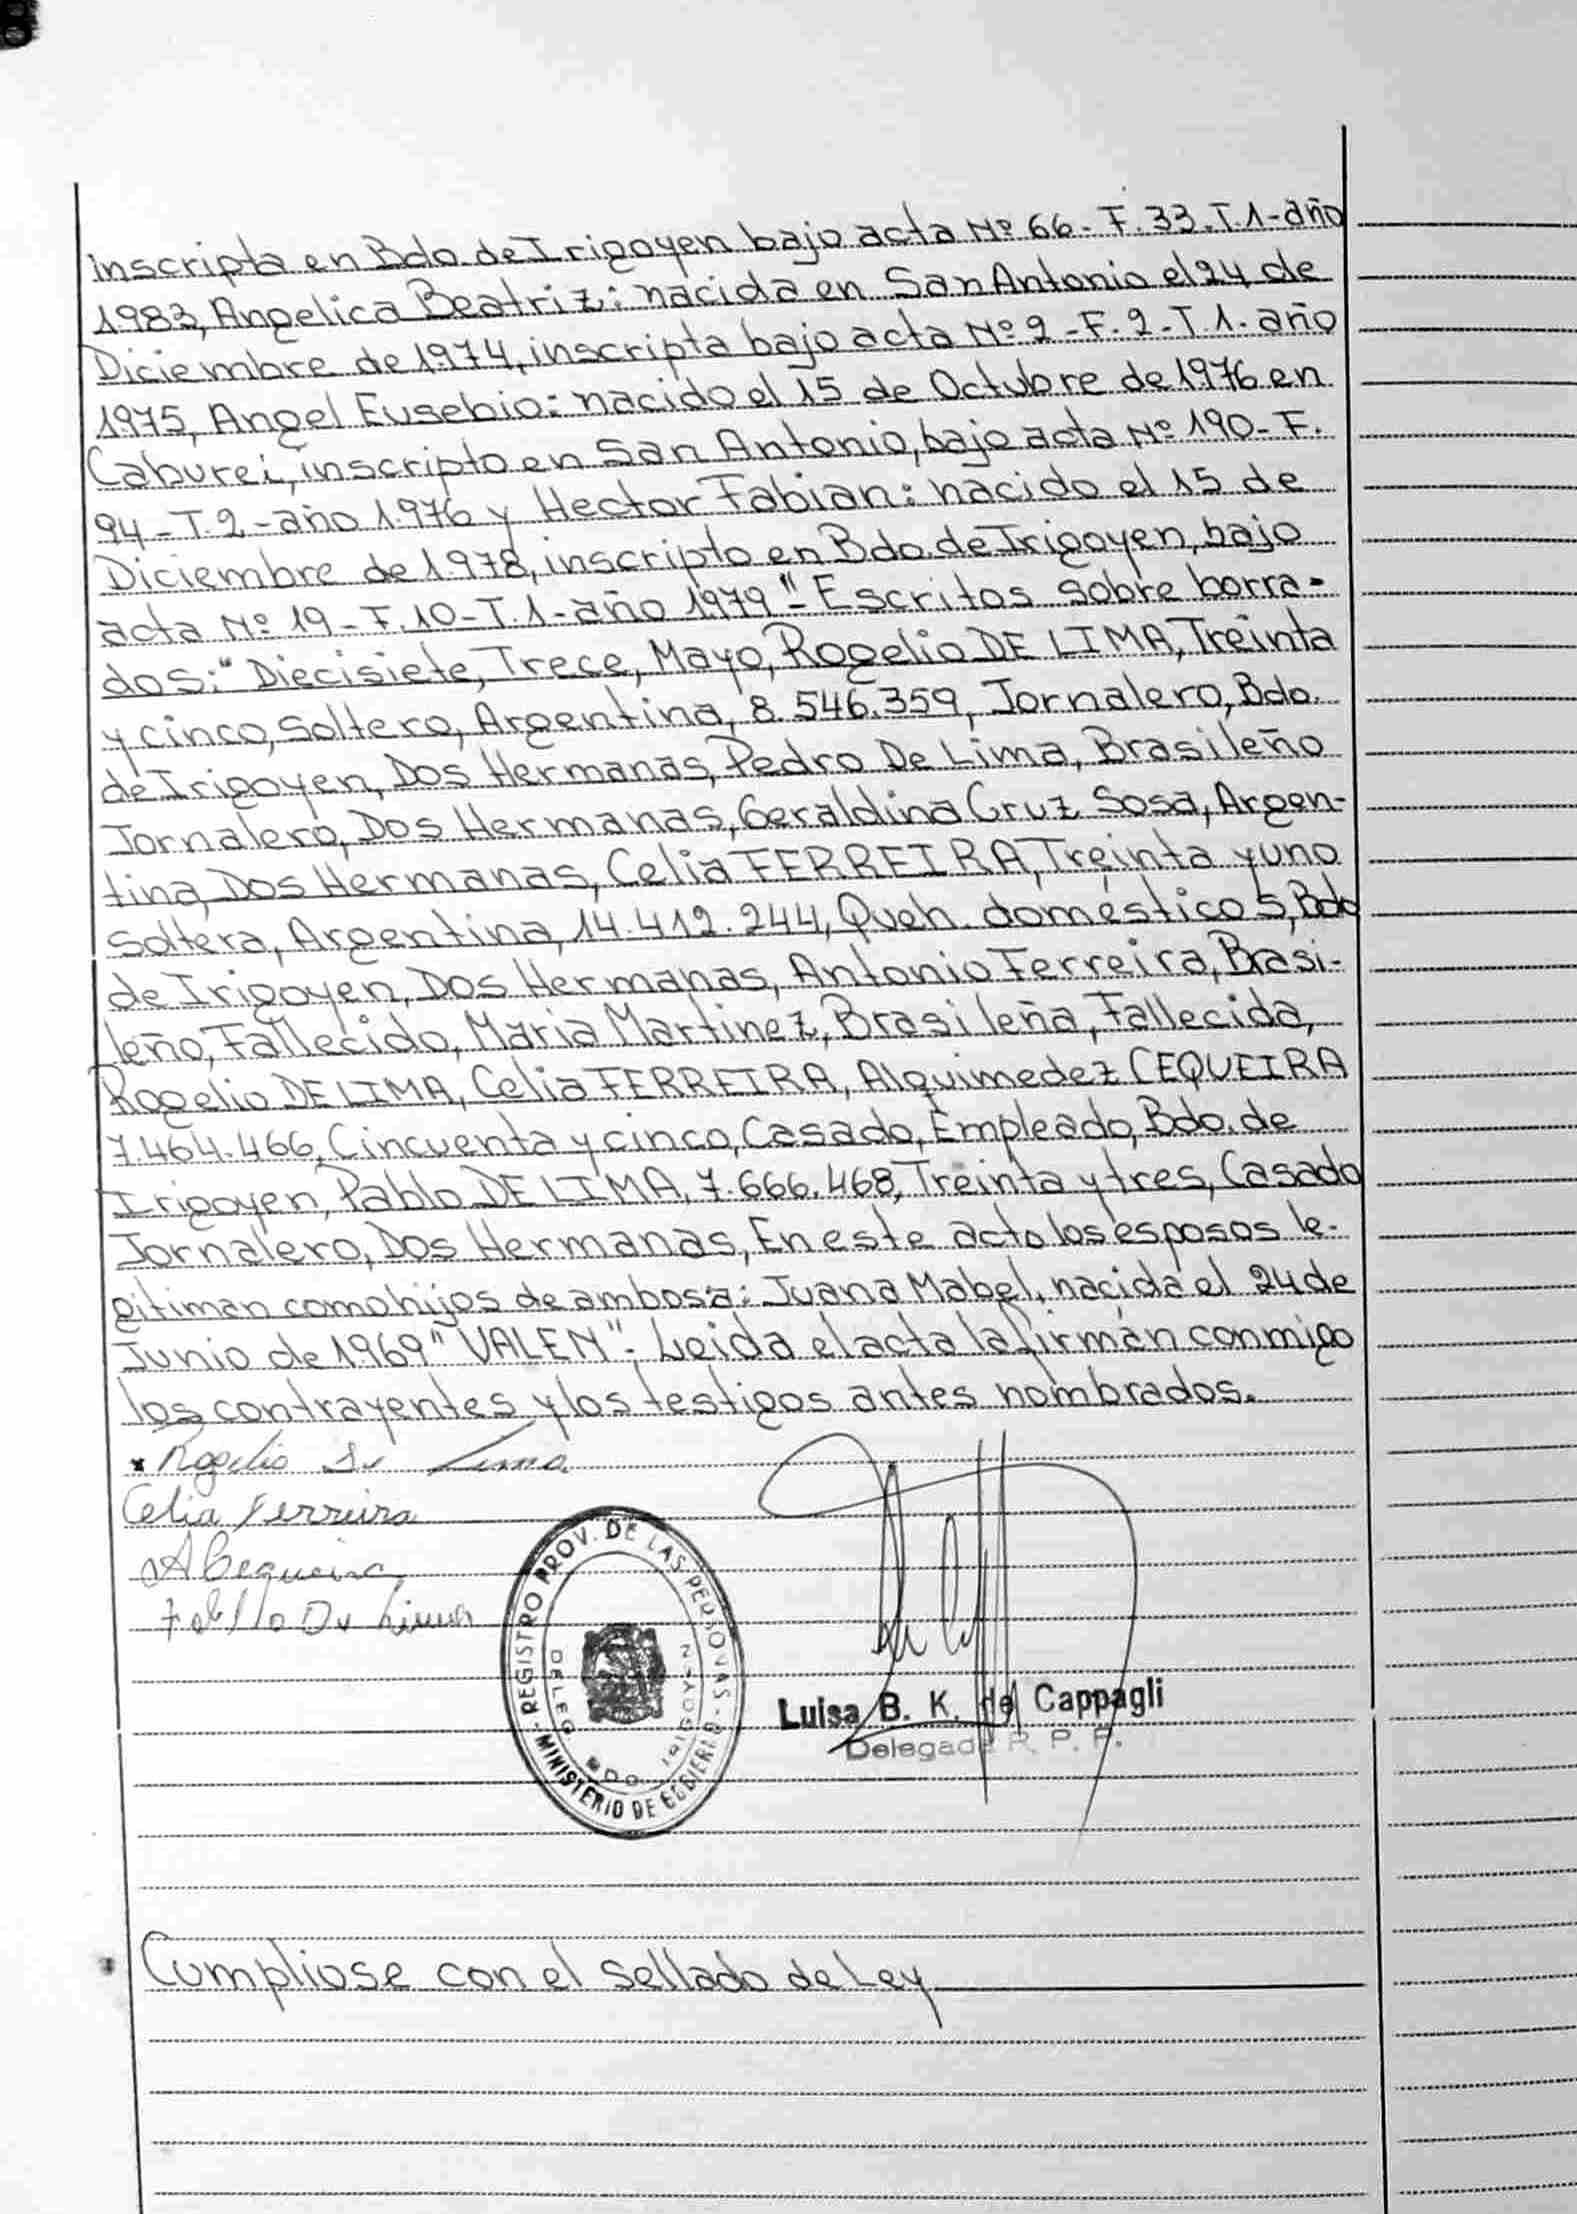 inscripta en Bdo. de Irigoyen bajo acta Nº 66- F. 33. T. 1- año
1983, Angelica Beatriz: nacida en San Antonio el 24 de
Diciembre de 1974, inscripta bajo acta Nº 2 - F. 2 - T. 1. año
1975, Angel Eusebio: nacido el 15 de Octubre de 1976 en
Caburei, inscripto en San Antonio, bajo acta Nº 190- F.
94 - T. 2 - año 1976 y Hector Fabian: nacido el 15 de
Diciembre de 1978, inscripto en Bdo. de Irigoyen, bajo
acta Nº 19 - F. 10 - T. 1 - año 1979"- Escritos sobre borra-
dos: "Diecisiete, Trece, Mayo, Rogelio DE LIMA, Treinta
y cinco, Soltero, Argentina, 8.546.359, Jornalero, Bdo.
de Irigoyen, Dos Hermanas, Pedro De Lima, Brasileño
Jornalero, Dos Hermanas, Geraldina Cruz Sosa, Argen-
tina, Dos Hermanas, Celia FERREIRA, Treinta y uno
Soltera, Argentina, 14.412.244, Queh. domésticos, Bdo
de Irigoyen, Dos Hermanas, Antonio Ferreira, Brasi-
leño, Fallecido, Maria Martinez, Brasileña, Fallecida,
Rogelio DE LIMA, Celia FERREIRA, Alquimedez CEQUEIRA
7.464.466, Cincuenta y cinco, Casado, Empleado, Bdo. de
Irigoyen, Pablo DE LIMA, 7.666.468, Treinta y tres, Casado
Jornalero, Dos Hermanas, En este acto los esposos le-
gitiman como hijos de ambos a: Juana Mabel, nacida el 24 de
Junio de 1969" VALEN".- Leida el acta la firman conmigo
los contrayentes y los testigos antes nombrados.
Rogelio De Lima
Celia Ferreira
A Cequeira
Pablo De Lima
REGISTRO PROV. DE LAS PERSONAS
- MINISTERIO DE GOBIERNO -
DELEG. BDO. IRIGOYEN
Luisa B. K. de Cappagli
Delegada R. P. P.
Cumpliose con el sellado de Ley